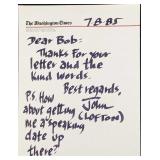 The Washington Times
7-8-85
Dear Bob:
Thanks for your
letter and the
kind words.
Best regards,
John
(Lofton)
P.S. How
about getting
me a speaking
date up
there?